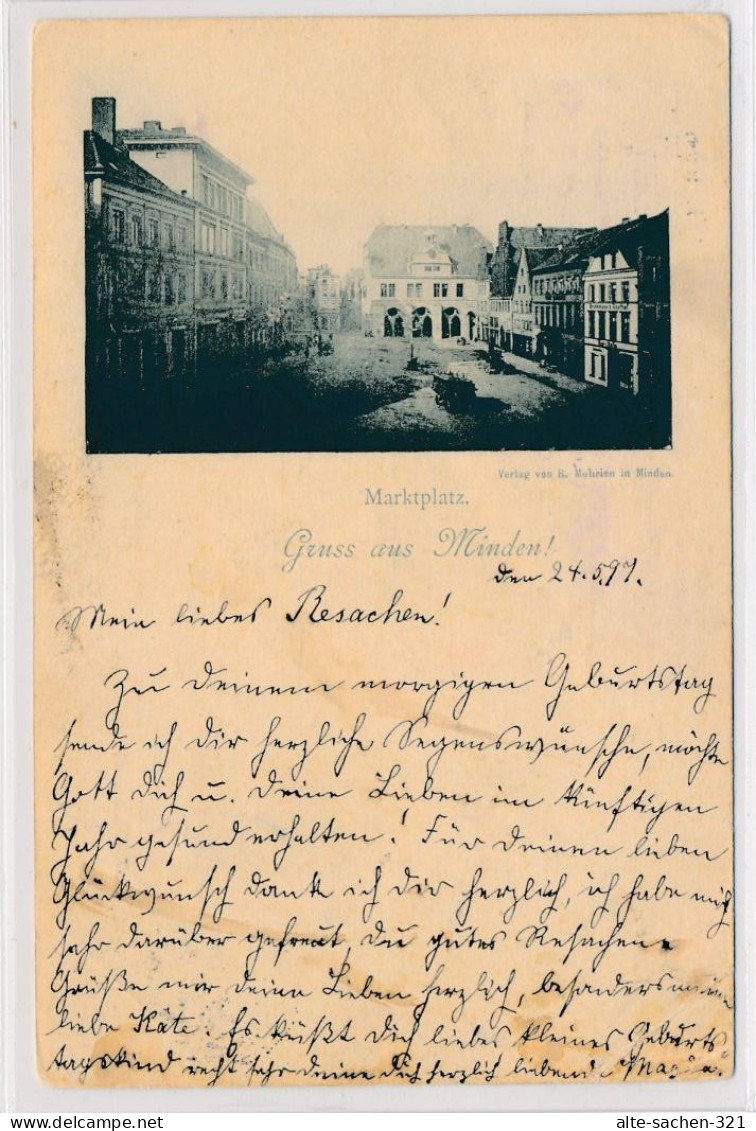 Verlag von R. Mohrien in Minden.
Marktplatz.
Gruss aus Minden!
den 24.5.97.
Mein liebes Resachen!
Zu Deinem morgigen Geburtstag
sende ich Dir herzliche Segenswünsche, möchte
Gott Dich u. Deine Lieben im künftigen
Jahr gesund erhalten! Für Deinen lieben
Glückwunsch danke ich Dir herzlich, ich habe mich
sehr darüber gefreut, Du gutes Resachen.
Grüße mir Deine Lieben herzlich, besonders meine
liebe Käte. Es küßt Dich liebes kleines Geburts
tagskind recht sehr Deine Dich herzlich liebende
alte-sachen-321